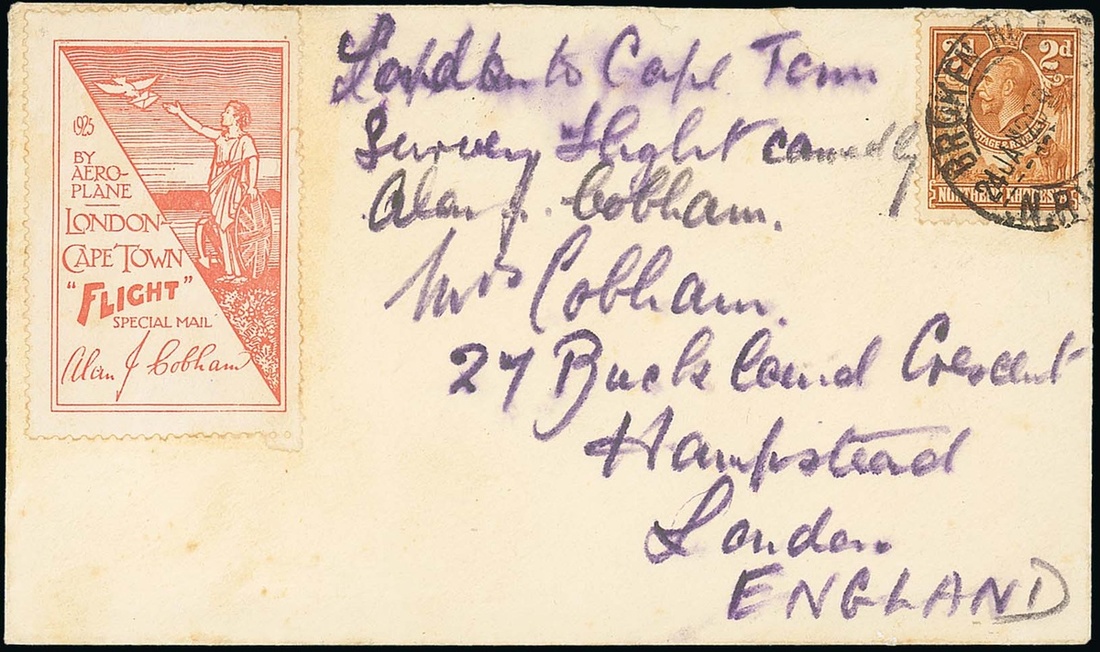 1925
BY
AERO-
PLANE
LONDON-
CAPE TOWN
"FLIGHT"
SPECIAL MAIL
Alan J Cobham
London to Cape Town
Survey Flight
Alan J. Cobham.
Mrs Cobham.
27 Buckland Crescent
Hampstead
London.
ENGLAND
2d 2d
POSTAGE & REVENUE
NORTHERN RHODESIA
BROKEN HILL
24 JAN 26
N.R.